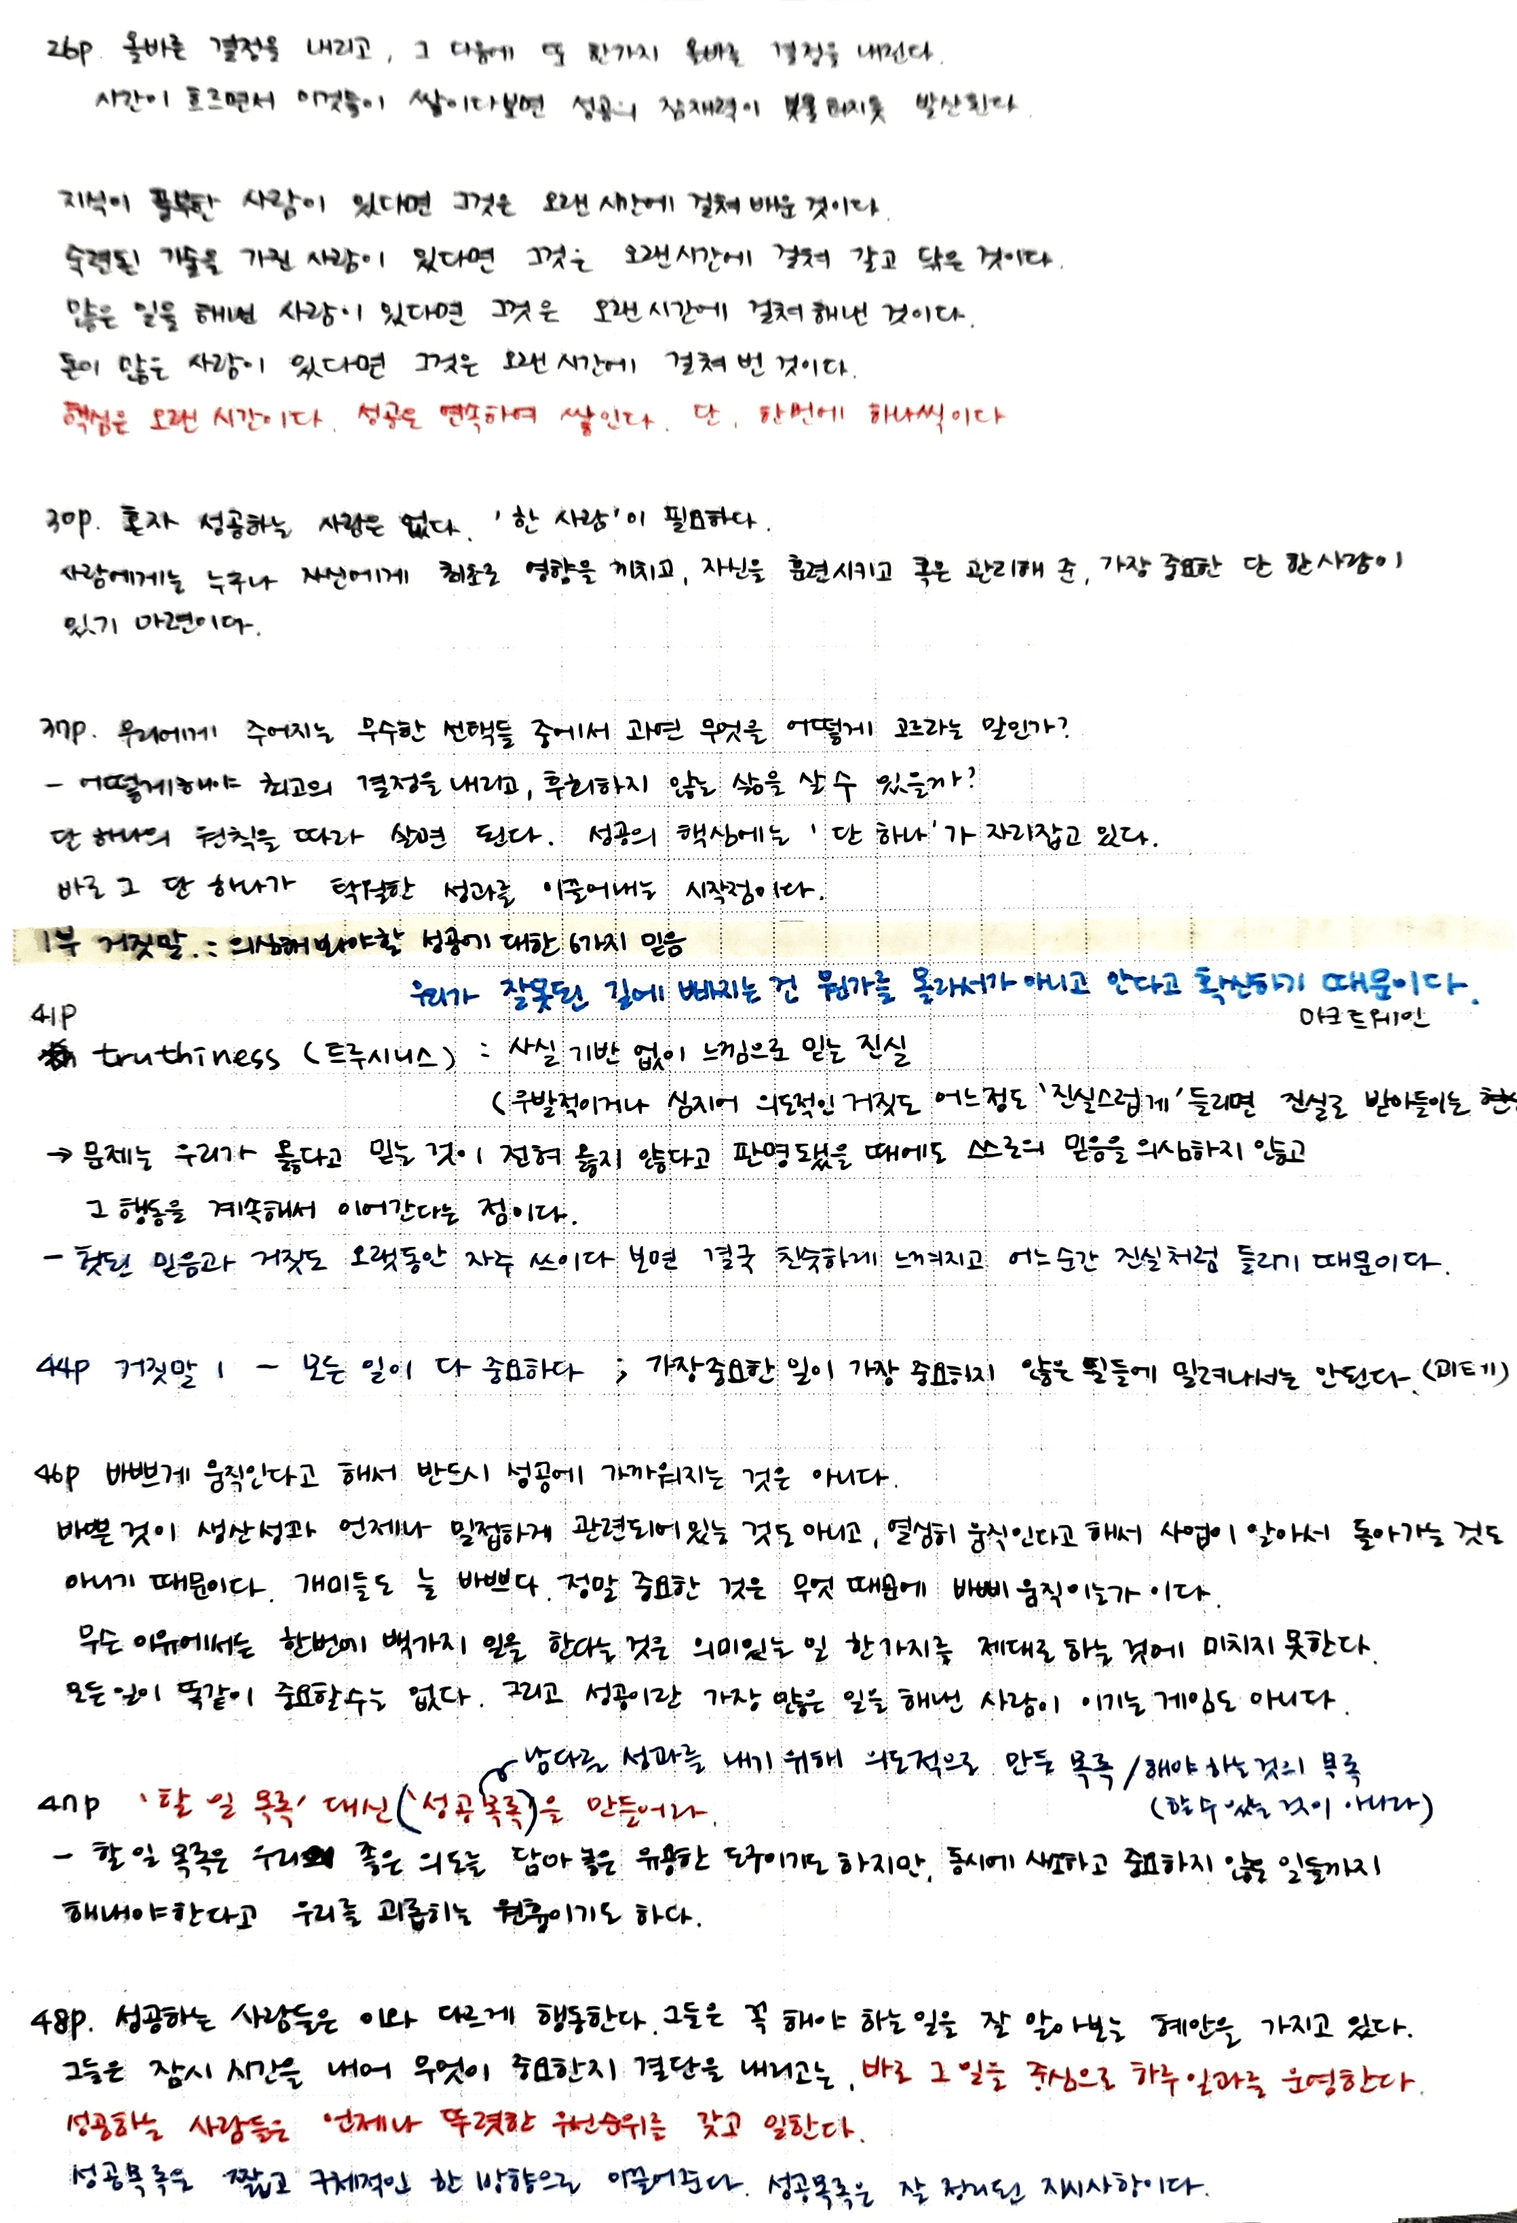 26p. 올바른 결정을 내리고, 그 다음에 또 한가지 올바른 결정을 내린다.
시간이 흐르면서 이것들이 쌓이다보면 성공의 잠재력이 봇물 터지듯 발산된다.
지식이 풍부한 사람이 있다면 그것은 오랜 시간에 걸쳐 배운 것이다.
숙련된 기술을 가진 사람이 있다면 그것은 오랜 시간에 걸쳐 갈고 닦은 것이다.
많은 일을 해낸 사람이 있다면 그것은 오랜 시간에 걸쳐 해낸 것이다.
돈이 많은 사람이 있다면 그것은 오랜 시간에 걸쳐 번 것이다.
핵심은 오랜 시간이다. 성공은 연속하여 쌓인다. 단, 한번에 하나씩이다
30p. 혼자 성공하는 사람은 없다. '한 사람'이 필요하다.
사람에게는 누구나 자신에게 최초로 영향을 끼치고, 자신을 훈련시키고 혹은 관리해 준, 가장 중요한 단 한 사람이
있기 마련이다.
37p. 우리에게 주어지는 무수한 선택들 중에서 과연 무엇을 어떻게 고르라는 말인가?
- 어떻게 해야 최고의 결정을 내리고, 후회하지 않는 삶을 살 수 있을까?
단 하나의 원칙을 따라 살면 된다. 성공의 핵심에는 '단 하나'가 자리잡고 있다.
바로 그 단 하나가 탁월한 성과를 이끌어내는 시작점이다.
1부 거짓말 : 의심해 봐야할 성공에 대한 6가지 믿음
우리가 잘못된 길에 빠지는 건 뭔가를 몰라서가 아니고 안다고 확신하기 때문이다.
마크트웨인
41p
truthiness (트루시니스) : 사실 기반 없이 느낌으로 믿는 진실
(우발적이거나 심지어 의도적인 거짓도 어느정도 '진실스럽게' 들리면 진실로 받아들이는
→ 문제는 우리가 옳다고 믿는 것이 전혀 옳지 않다고 판명됐을 때에도 스스로의 믿음을 의심하지 않고
그 행동을 계속해서 이어간다는 점이다.
- 헛된 믿음과 거짓도 오랫동안 자주 쓰이다 보면 결국 친숙하게 느껴지고 어느순간 진실처럼 들리기 때문이다.
44p 거짓말 1 - 모든 일이 다 중요하다 ; 가장 중요한 일이 가장 중요하지 않은 일들에 밀려나서는 안된다. (괴테)
46p 바쁘게 움직인다고 해서 반드시 성공에 가까워지는 것은 아니다.
바쁜 것이 생산성과 언제나 밀접하게 관련되어있는 것도 아니고, 열심히 움직인다고 해서 사업이 알아서 돌아가는 것도
아니기 때문이다. 개미들도 늘 바쁘다. 정말 중요한 것은 무엇 때문에 바삐 움직이는가 이다.
무슨 이유에서든 한번에 백가지 일을 한다는 것은 의미있는 일 한가지를 제대로 하는 것에 미치지 못한다.
모든일이 똑같이 중요할수는 없다. 그리고 성공이란 가장 많은 일을 해낸 사람이 이기는 게임도 아니다.
남다른 성과를 내기 위해 의도적으로 만든 목록 / 해야 하는것의 목록
(할 수 있는 것이 아니라)
47p '할 일 목록' 대신 ('성공 목록)을 만들어라.
- 할 일 목록은 우리의 좋은 의도를 담아 놓은 유용한 도구이기도 하지만, 동시에 사소하고 중요하지 않은 일들까지
해내야한다고 우리를 괴롭히는 원흉이기도 하다.
48p. 성공하는 사람들은 이와 다르게 행동한다. 그들은 꼭 해야 하는일을 잘 알아보는 혜안을 가지고 있다.
그들은 잠시 시간을 내어 무엇이 중요한지 결단을 내리고는, 바로 그 일을 중심으로 하루일과를 운영한다.
성공하는 사람들은 언제나 뚜렷한 우선순위를 갖고 일한다.
성공목록은 짧고 구체적인 한 방향으로 이끌어준다. 성공목록은 잘 정리된 지시사항이다.